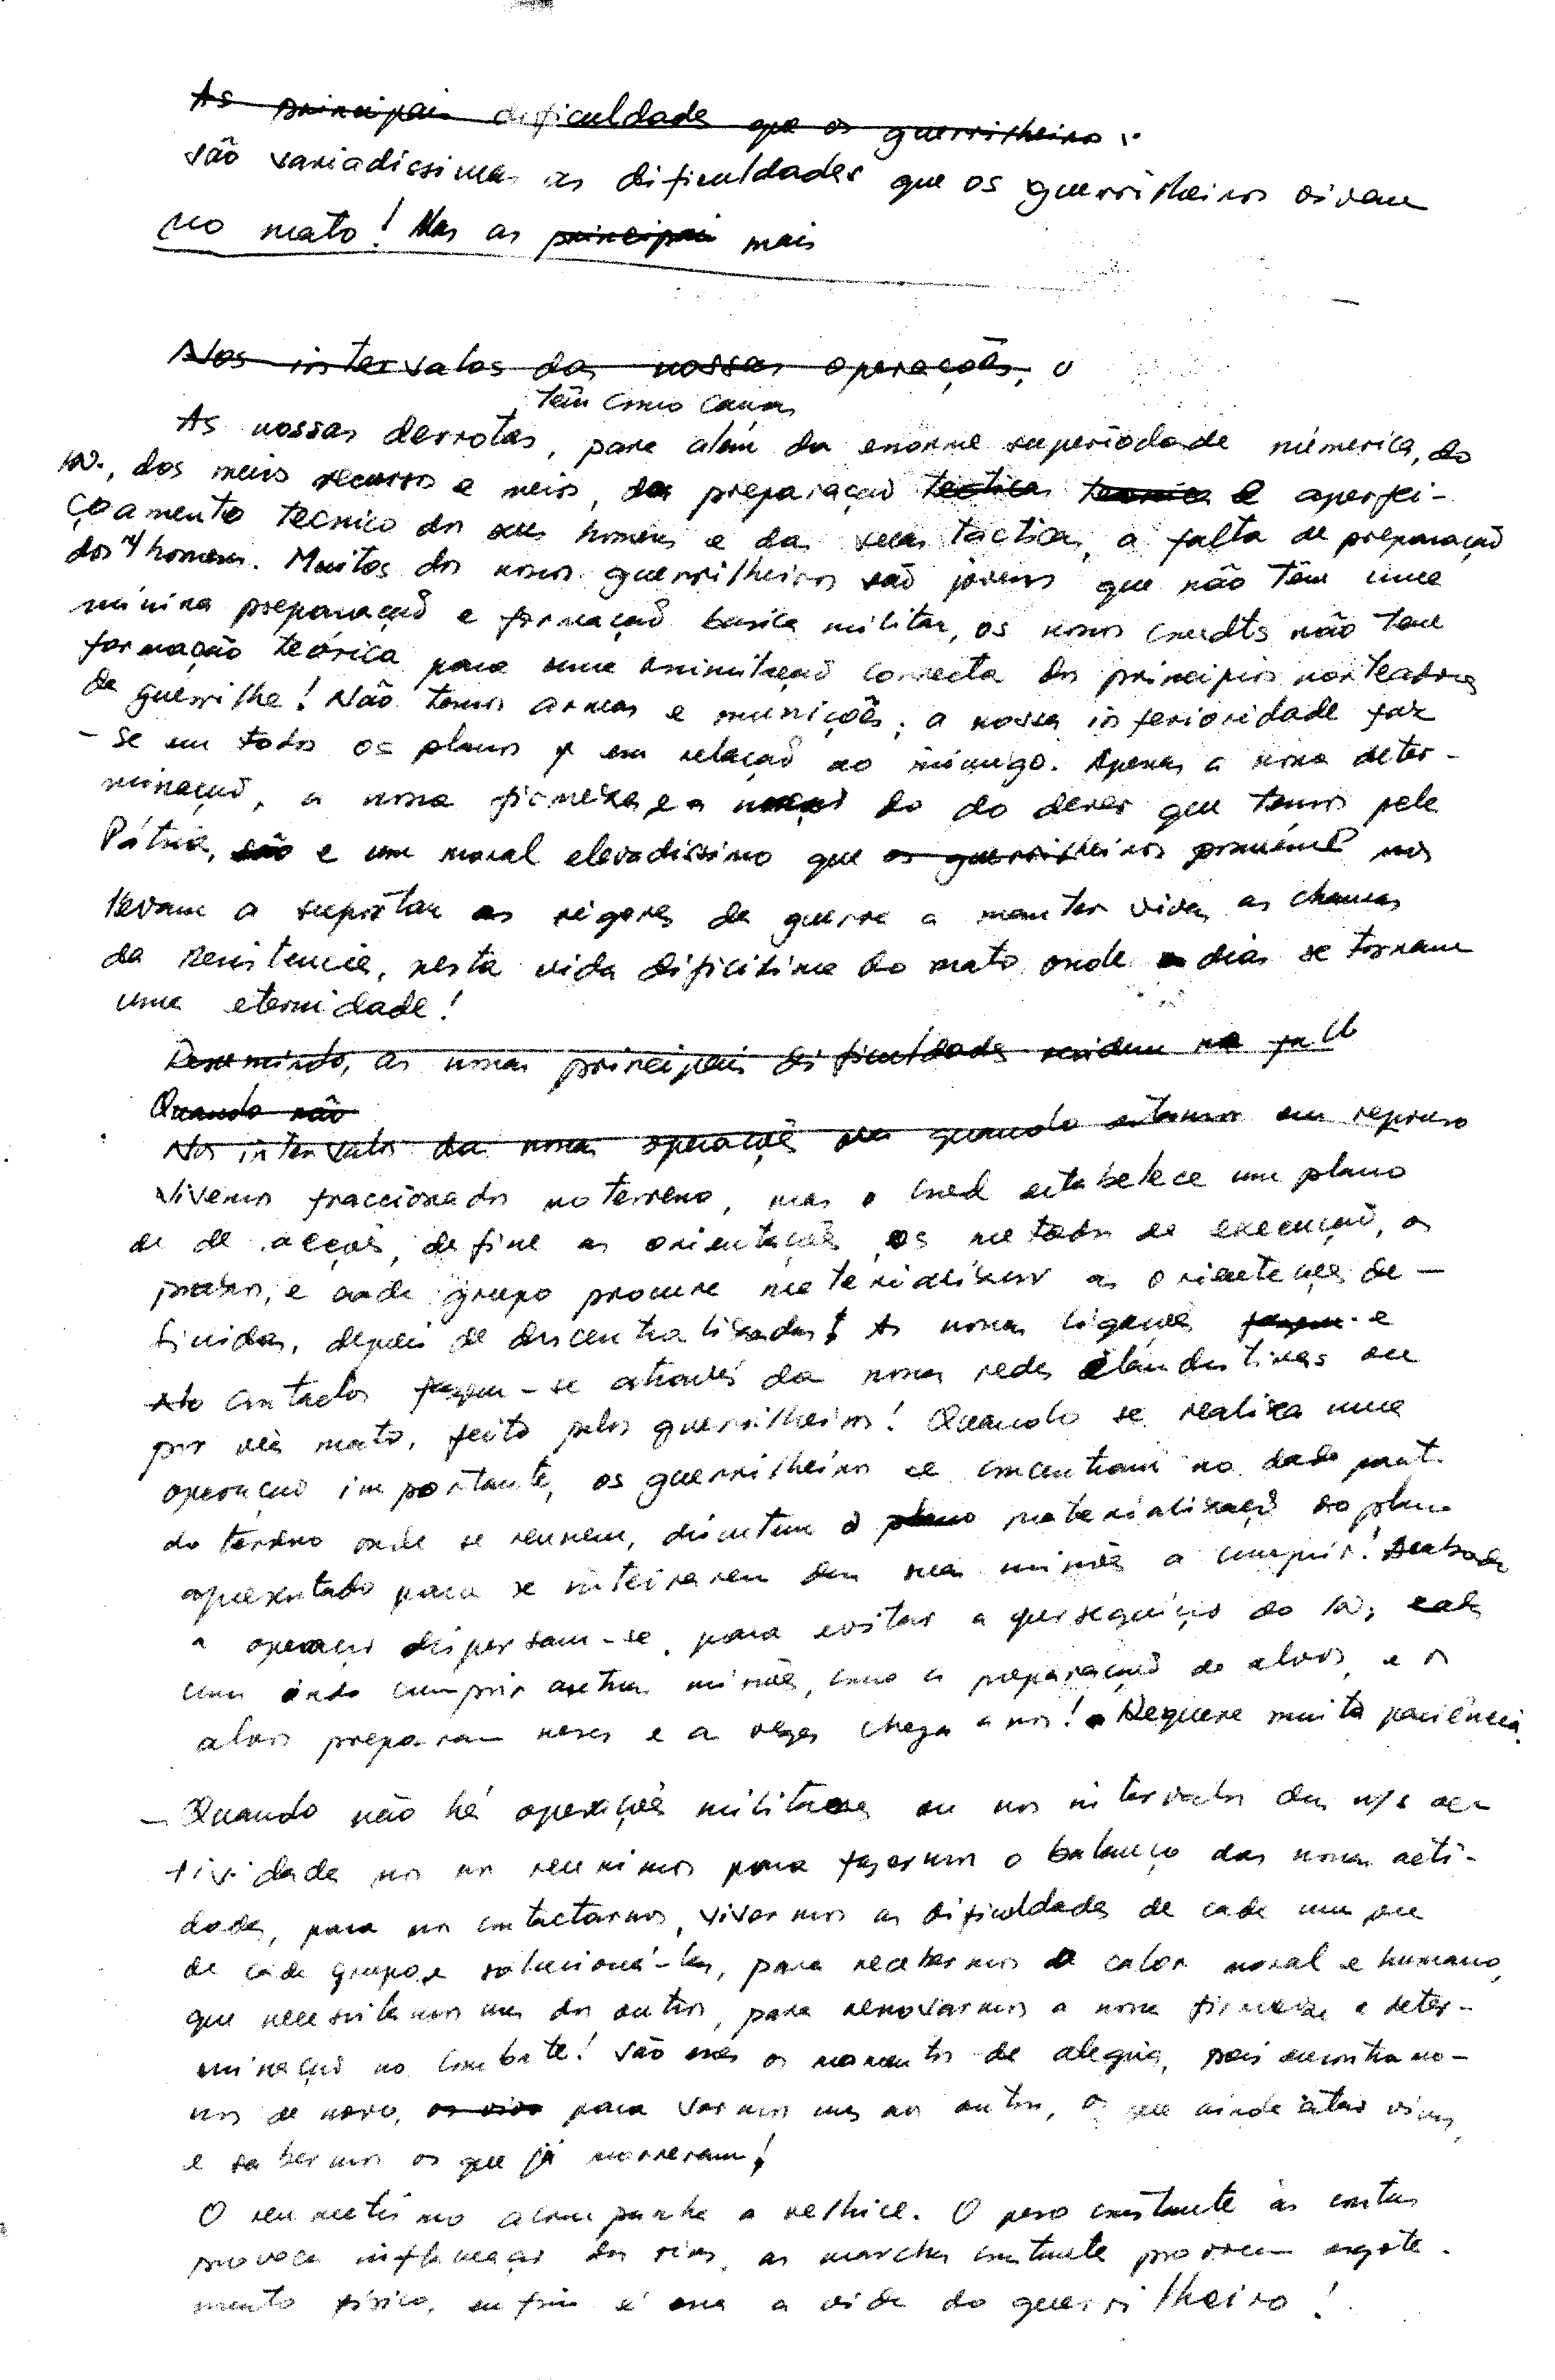 As principais dificuldade que os guerrilheiro
São variadissimas as dificuldades que os guerrilheiros vivem
no mato! Mas as principais mais
Nos intervalos das nossas operações, o
têm como causas
As nossas derrotas, para além da enorme superiodade númerica, do
in., dos meios recursos e meios, da preparação tactica tecnica e aperfei-
çoamento tecnico dos seus homens e das suas tacticas, a falta de preparação
dos n/ homens. Muitos dos nossos guerrilheiros são jovens que não têm uma
minima preparação e formação basica militar, os nossos cmdts não tem
formação teórica para uma assimilação correcta dos principios norteadores
da guerrilha! Não temos armas e munições; a nossa inferioridade faz
-se em todos os planos em relação ao inimigo. Apenas a nossa deter-
minação, a nossa firmeza e a noção do do dever que temos pela
Pátria, são e um moral elevadissimo que os guerrilheiros possuimos nos
levam a suportar os rigores da guerra a manter vivas as chamas
da resistencia, nesta vida dificilima do mato onde os dias se tornam
uma eternidade!
Resumindo, as nossas principais dificuldades residem na falt
Quando não
Nos intervalos das nossas operações ou quando estamos em repouso
Vivemos fraccionados no terreno, mas o Cmd estabelece um plano
de de acções, define as orientações, os metodos de execução, os
prazos, e cada grupo procura materializar as orientações de-
finidas, depois de descentralizadas! As nossas ligações fazem-se
Ato contactos fazem-se através das nossas redes clandestinas ou
por via mato, feito pelos guerrilheiros! Quando se realiza uma
operação importante, os guerrilheiros se concentram no dado ponto
do terreno onde se reunem, discutem a plano materialização do plano
apresentado para se inteirarem das suas missões a cumprir! Acabada
a operação dispersam-se, para evitar a perseguição do in; cada
um indo cumprir outras missões, como a preparação de alvos, e os
alvos preparam meses e a vezes chega a anos! Requere muita paciência.
- Quando não há operações militares ou nos intervalos das n/s ac-
tividades nos nos reunimos para fazermos o balanço das nossas acti-
dades, para nos contactarmos, vivermos as dificuldades de cada um ou
de cada grupo e solucioná-las, para recebermos o calor moral e humano,
que necessitamos uns dos outros, para renovarmos a nossa firmeza e deter-
minação no combate! São esses os momentos de alegria, pois encontramo-
nos de novo, os vivos para vermos uns aos outros, os que ainda estão vivos,
e sabermos os que já morreram!
O reumatismo acompanha a velhice. O peso constante às costas
provoca inflamação dos rins, as marchas constante provocam esgota-
mento fisico, enfim é essa a vida do guerrilheiro!